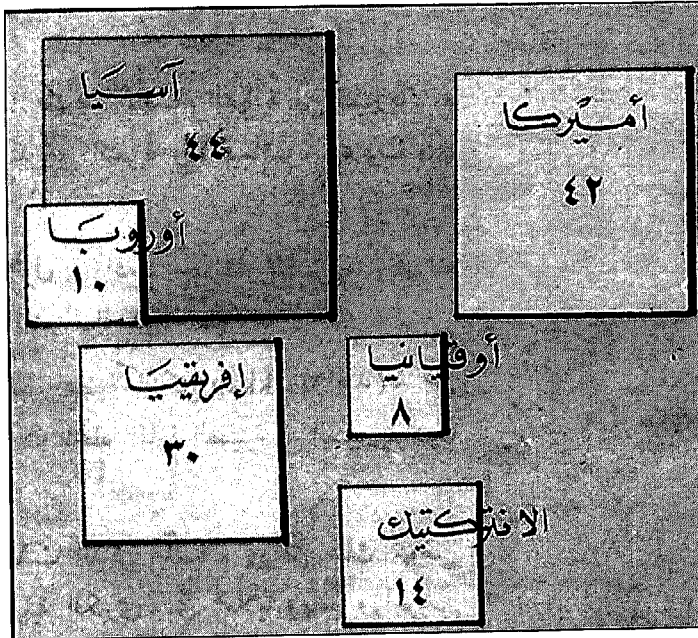 آسيا
٤٤
أميركا
٤٢
أوروبا
١٠
إفريقيا
٣٠
أوقيانيا
٨
الانتركتيك
١٤